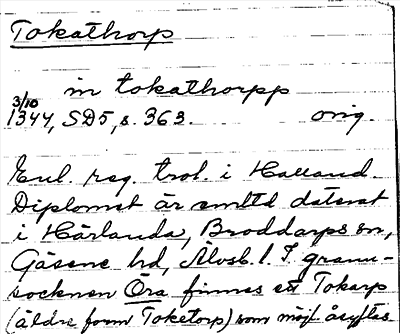 Tokathorp
in tokathorpp
3/10
1344, SD5, s. 363. orig.
Enl. reg. trol. i Halland.
Diplomet är emltd daterat
i Härlunda, Broddarps sn,
Gäsene hd, Älvsb. l. I grann-
socknen Öra finnes ett Tokarp
(äldre form Toketorp) som möjl. åsyftas